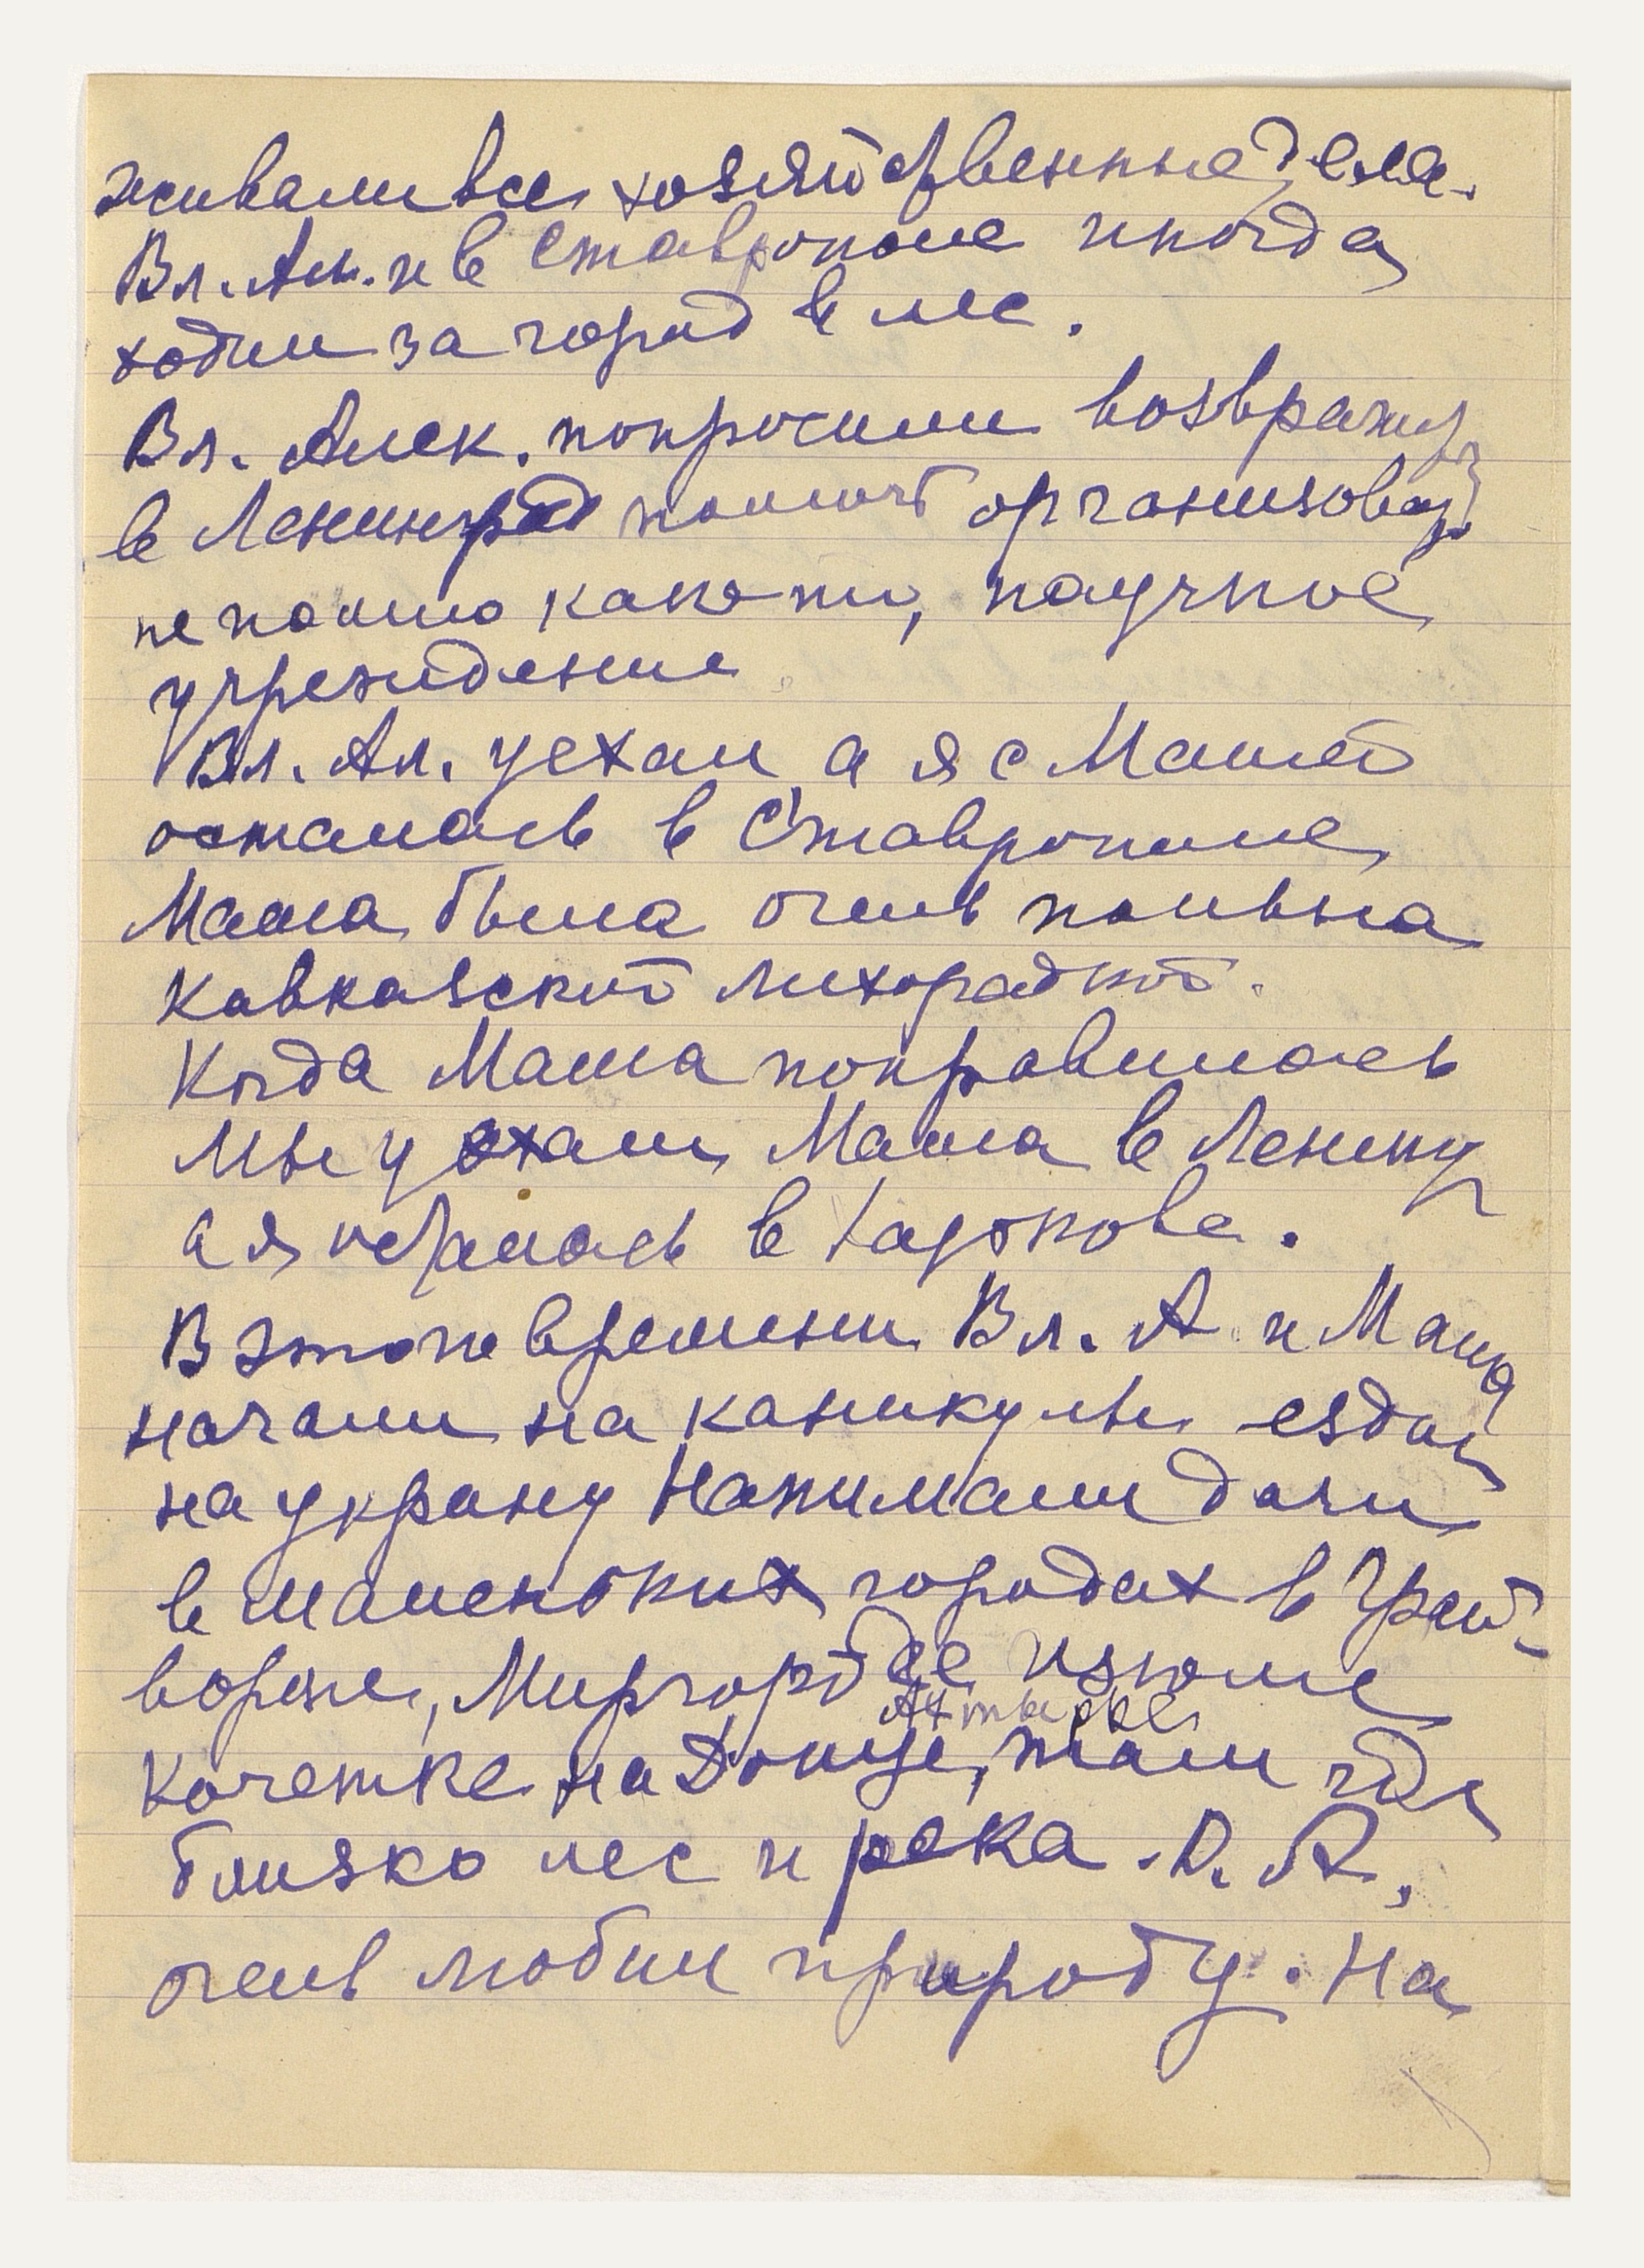 живали все хозяйственные дела.
Вл. Ал. и в Ставрополе иногда
ходил за город в лес.
Вл. Алек. попросили возврат
в Ленинград помочь организоват
не помню како то, научное
учреждение
Вл. Ал. уехал а я с Машей
осталась в Ставрополе
Маша была очень больна
Кавказской лихорадкой.
Когда Маша поправилась
мы уехали Маша в Ленингр
а я осталась в
В этого времени Вл. А и Маша
начали на каникулы ездить
на украну Нанимали дачи
в маленьких городах в Грай-
вороне, Миргороде Изюме
Ахтырке
Кочетке на Донце, там где
близко лес и река. В. А.
очень любил природу. На